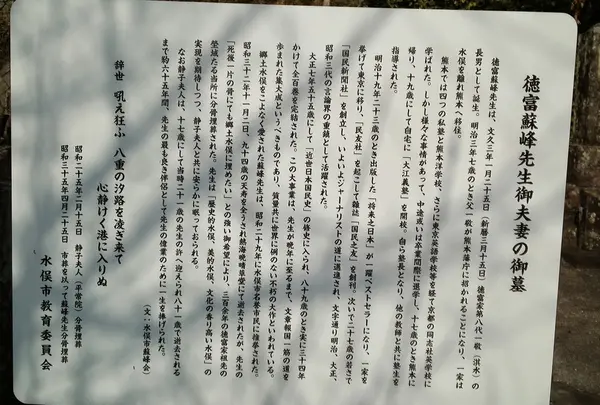 徳富蘇峰先生御夫妻の御墓
徳富蘇峰先生は、文久三年一月二十五日（新暦三月十五日）徳富家第八代一敬（淇水）の
長男として誕生。明治三年七歳のとき父一敬が熊本藩庁に招かれることになり、一家は
水俣を離れ熊本へ移住。
熊本では四つの私塾と熊本洋学校、さらに東京英語学校等を経て京都の同志社英学校に
学ばれた。しかし様々な事情があって、中途或いは卒業間際に退学し、十七歳のとき熊本に
帰り、十九歳にして自宅に「大江義塾」を開校。自ら塾長となり、他の教師と共に塾生を
指導された。
明治十九年二十三歳のとき出版した「将来之日本」が一躍ベストセラーになり、一家を
挙げて東京に移り、「民友社」を起こして雑誌「国民之友」を創刊。次いで二十七歳の若さで
「国民新聞社」を創立し、いよいよジャーナリストの道に邁進され、文字通り明治、大正、
昭和三代の言論界の重鎮として活躍された。
大正七年五十五歳にして「近世日本国民史」の修史に入られ、八十九歳のとき実に三十四年
かけて全百巻を完結された。この大事業は、先生が晩年に至るまで、文章報国一筋の道を
歩まれた集大成というべきものであり、質量共に世界に例のない不朽の大作といわれている。
郷土水俣をこよなく愛された蘇峰先生は、昭和二十九年に水俣市名誉市民に推挙された。
昭和三十二年十一月二日、九十四歳の天寿を全うされ熱海晩晴草堂で逝去されたが、先生の
「死後一片の骨にても郷土水俣に埋めたい」との強い御希望により、三百余年の徳富家祖先の
塋域たる当所に分骨埋葬された。先生は「歴史的水俣、美的水俣、文化の香り高い水俣」の
実現を期待しつつ、静子夫人と共に安らかに眠っておられる。
なお静子夫人は、十七歳にして当時二十一歳の先生の許へ迎えられ八十一歳で逝去される
まで約六十五年間、先生の最も良き伴侶として先生の偉業のために一生を捧げられた。
（文・水俣市蘇峰会）
辞世 吼え狂ふ 八重の汐路を凌ぎ来て
心静けく港に入りぬ
昭和二十五年二月十五日 静子夫人（平常院）分骨埋葬
昭和三十五年四月二十五日 市葬を以って蘇峰先生分骨埋葬
水俣市教育委員会